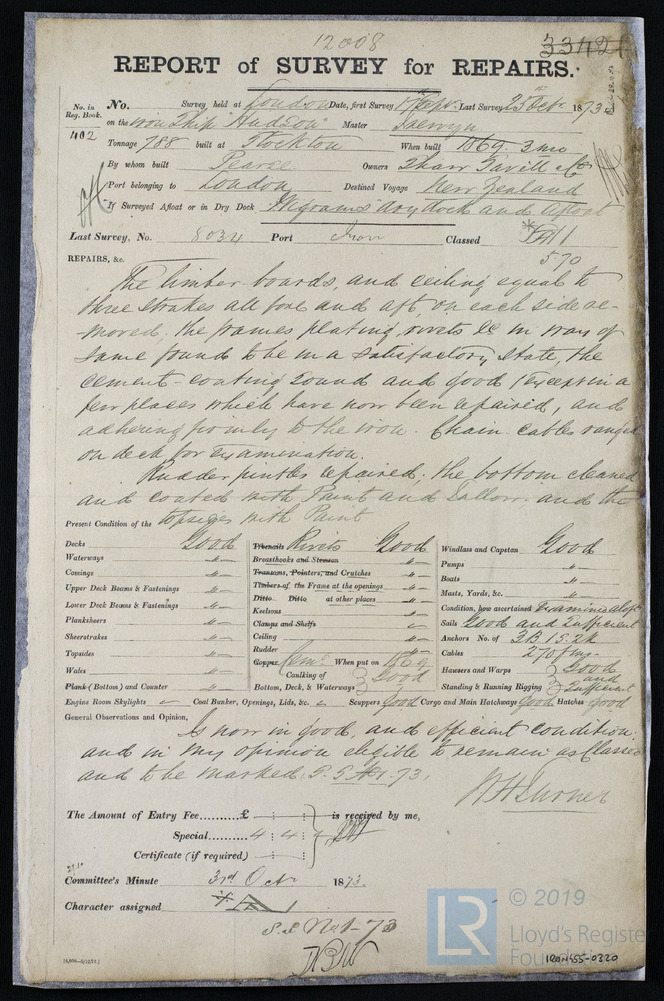 12008
REPORT of SURVEY for REPAIRS.
No. in Reg. Book. No. Survey held at London Date, first Survey Sept. Last Survey 25 Octr. 1873
402 on the Iron Ship "Hudson" Master
Tonnage 788 built at Stockton When built 1869. 3 mo
By whom built Pearse Owners Shaw Savill & Co
Port belonging to London Destined Voyage New Zealand
If Surveyed Afloat or in Dry Dock Wigrams dry dock and afloat
Last Survey, No. 8034 Port Iron Classed A 1
5.70
REPAIRS, &c.
The limber boards, and ceiling equal to
three strakes all fore and aft, on each side re-
-moved. The frames plating, rivets &c in way of
same found to be in a satisfactory state, the
cement-coating sound and good (except in a
few places which have now been repaired, and
adhering firmly to the iron. Chain cables ranged
on deck for examination.
Rudder pintles repaired. The bottom cleaned
and coated with Paint and Tallow. and the
topsides with Paint
Present Condition of the
Decks Good Treenails Rivets Good Windlass and Capstan Good
Waterways " Breasthooks and Stemson " Pumps "
Comings " Transoms, Pointers, and Crutches " Boats "
Upper Deck Beams & Fastenings " Timbers of the Frame at the openings " Masts, Yards, &c. "
Lower Deck Beams & Fastenings " Ditto Ditto at other places " Condition, how ascertained Examined aloft
Planksheers " Keelsons " Sails Good and Sufficient
Sheerstrakes " Clamps and Shelfs Anchors No. of 3B 1S. 2K
Topsides " Ceiling " Cables 270 fms.
Wales " Rudder " Hawsers and Warps Good and Sufficient
Plank (Bottom) and Counter " Copper Cemt. When put on 1869 Standing & Running Rigging
Caulking of Bottom, Deck, & Waterways Good
Engine Room Skylights Coal Bunker, Openings, Lids, &c. Scuppers Good Cargo and Main Hatchways Good Hatches Good
General Observations and Opinion,
Is now in good, and efficient condition.
and in my opinion eligible to remain as Classed
and to be marked. 73.
W H Turner
The Amount of Entry Fee £ is received by me,
Special 4 : 4 :
Certificate (if required)
Committee's Minute 31st Octr 1873.
Character assigned
73
© 2019
LR
Lloyd's Register
Foun
IRON455-0320